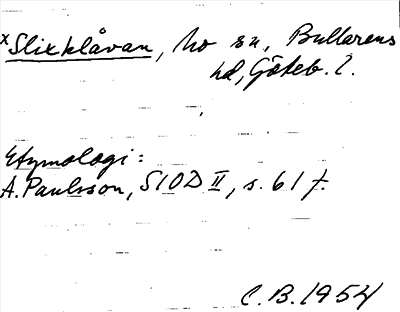 x Slixklåvan, Mo sn, Bullarens
hd, Göteb. l.
Etymologi:
A. Paulsson, SIOD II, s. 61 f.
C.B. 1954